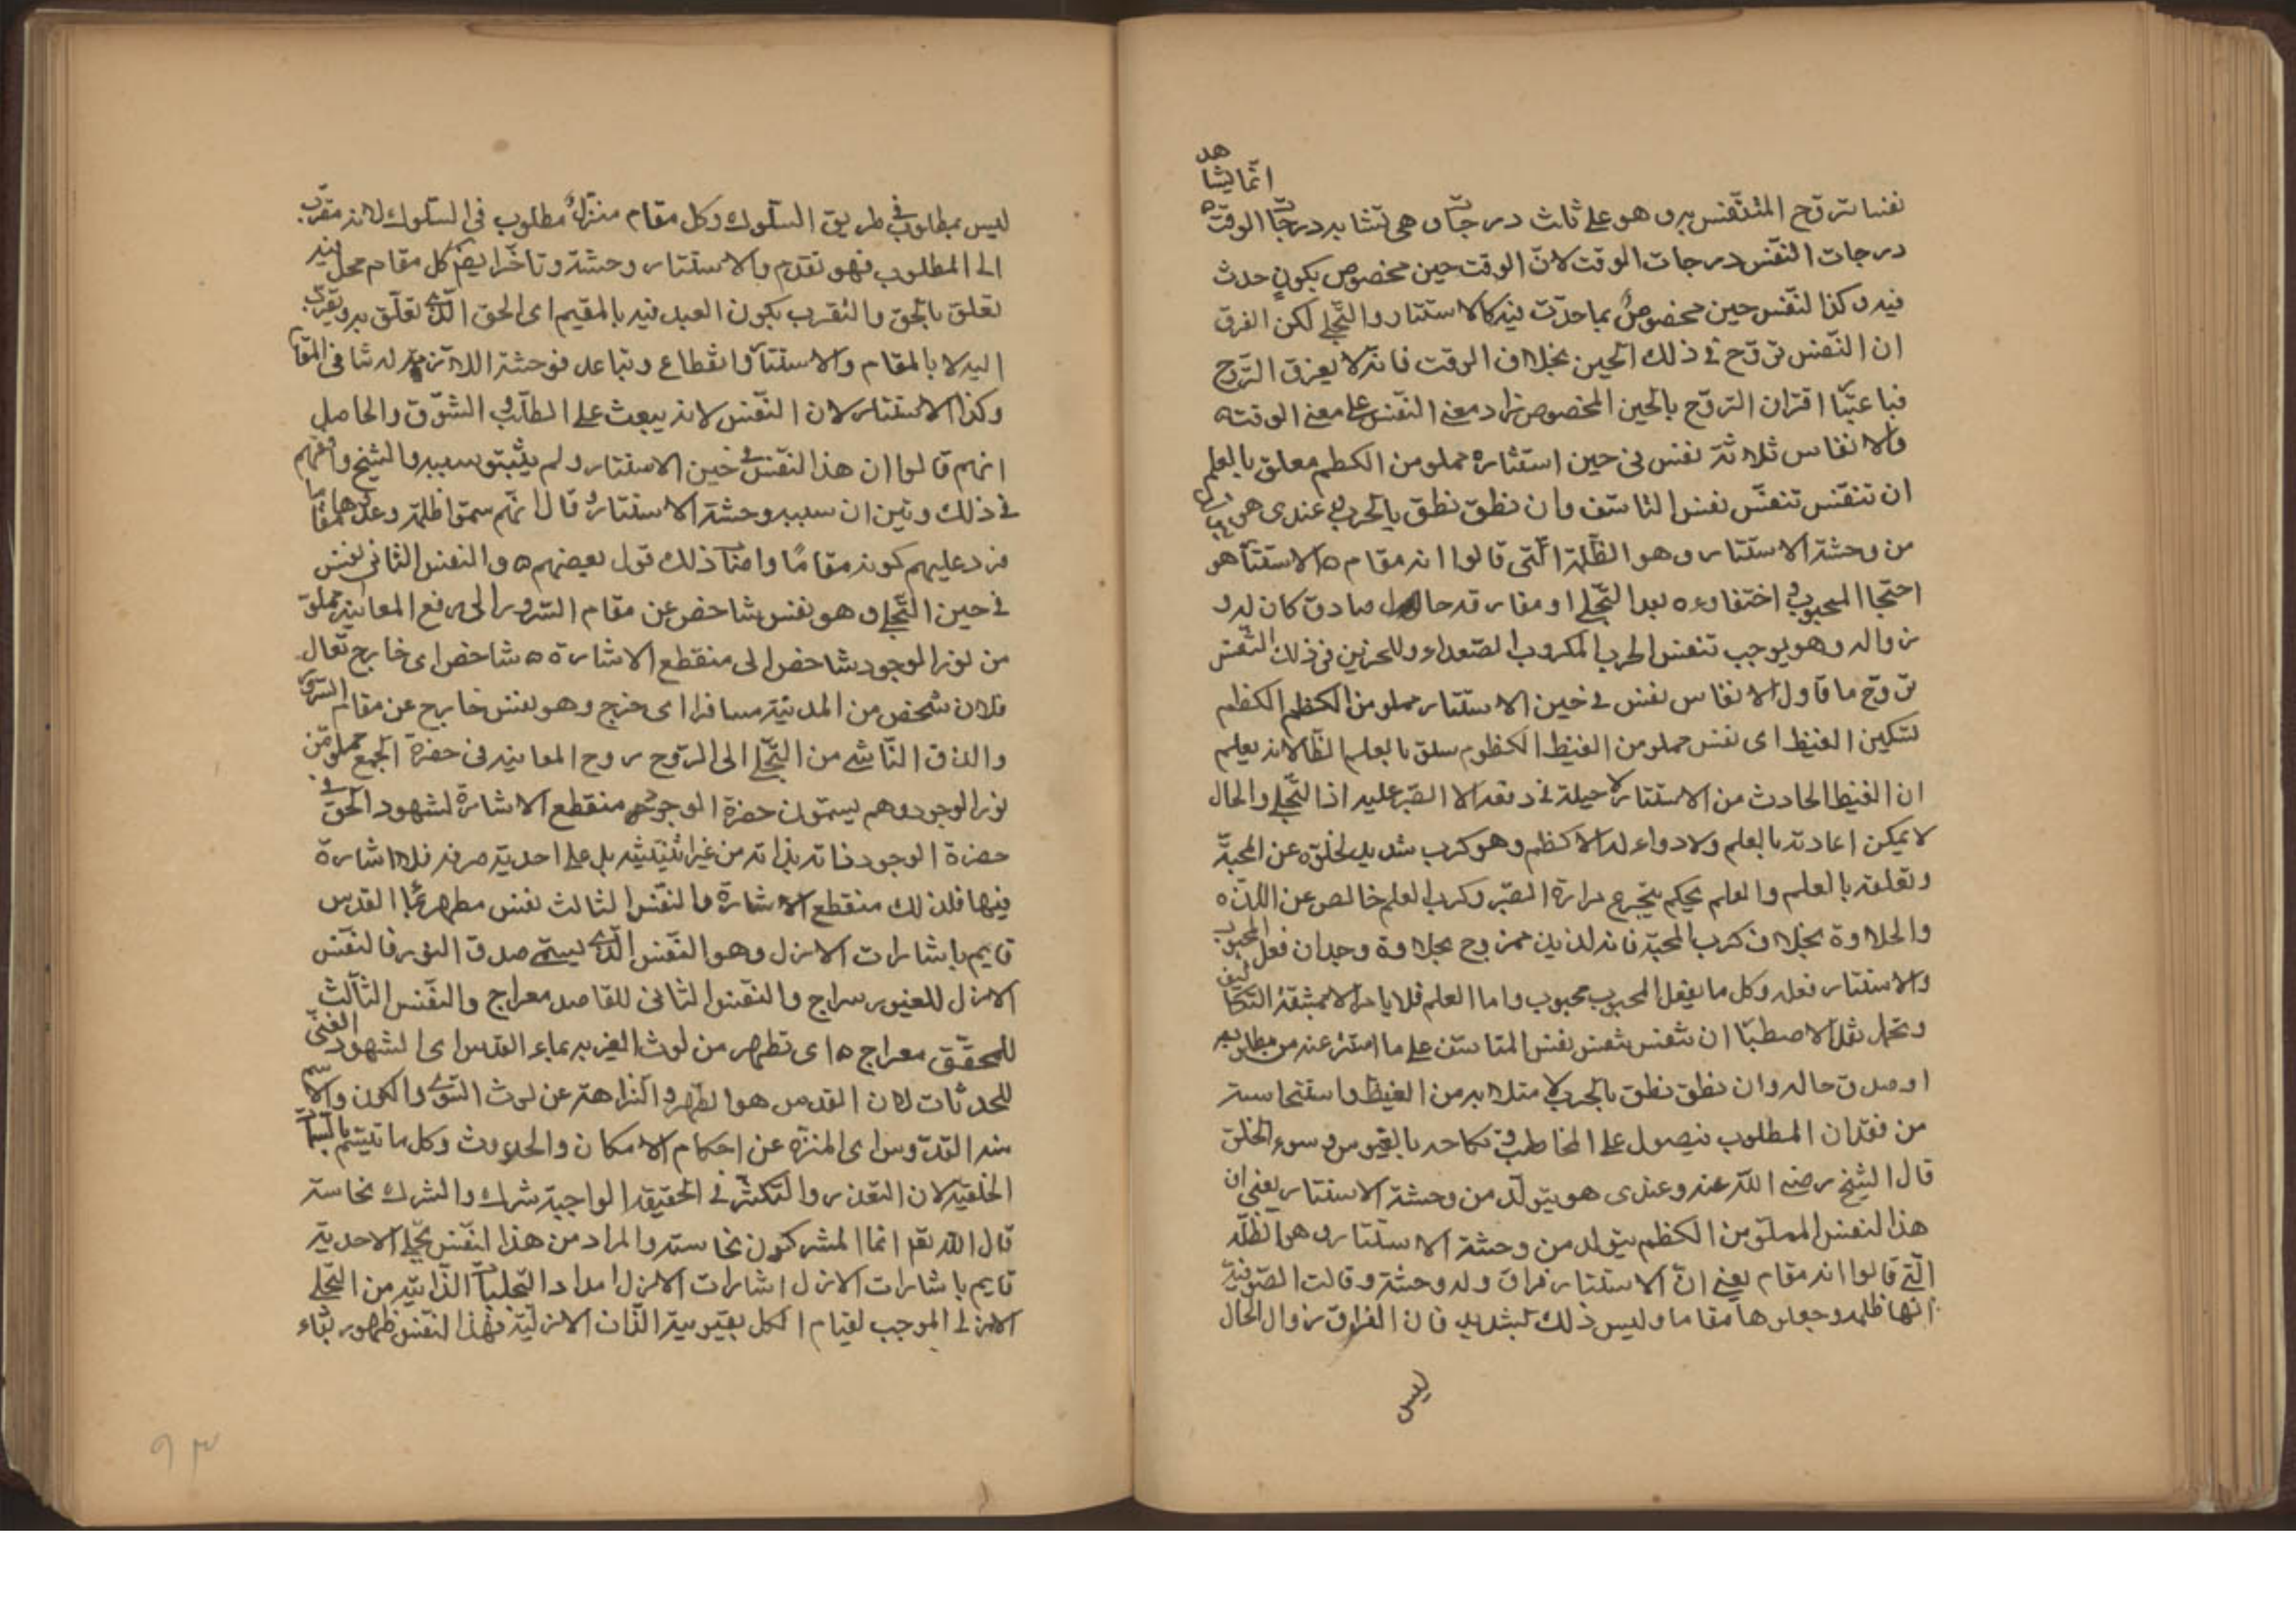 هد
انما يشا
نفسا لتروّح المتنفّس به وهو على ثلث درجات وهى تشابه درجات الوقت ه
درجات النفّس درجات الوقت لانّ الوقت حين مخصوص بكونٍ حدث
فيه وكذا النّفس حين مخصوصٌ بما حدث فيه كالاستتار والتّجلى لكن الفرق
ان النّفس تروّح فى ذلك الحين بخلاف الوقت فانه لا يعرف التروّح
فباعتبا اقتران التروّح بالحين المخصوص زاد معنى النفّس على معنى الوقت ه
والانفاس ثلاثة نفس فى حين استتاره مملو من الكظم معلق بالعلم
ان تنفّس تنفّس نفس المتاسّف وان نطق نطق بالحرب وعندى هو
من وحشة الاستتار وهو الظّلمة الّتى قالوا انه مقام ه الاستتار هو
احتجا المحبوب واختفاوه بعد التّجلى او مفارقة حال صادق كان له و
زواله وهو يوجب تنفس الحرب المكروب الصّعداء وللحزين فى ذلك التنفّس
تروّح ما فاول الانفاس نفس فى حين الاستتار مملو من الكظم الكظم
تسكين الغيظ اى نفس مملو من الغيظ الكظوم معلق بالعلم الظّا لانه يعلم
ان الغيظ الحادث من الاستتار لا حيلة فى دفعه الا الصّبر عليه اذ التّجلى والحال
لا يمكن اعادته بالعلم ولا دواء له الا كظم وهو كرب شديد لخلوّه عن المحبّة
وتعلقه بالعلم والعلم يحكم بتجرّع مرارة الصّبر وكرب العلم خالص عن اللذة ه
والحلاوة بخلاف كرب المحبّة فانه لذيذ ممزوج بحلاوة وجدان فعل المحبوب
والاستتار فعله وكل ما يفعل المحبوب محبوب واما العلم فلا يامر الا بمشقة التكاليف
وتحمل ثقل الاصطبا ان تنفس تنفس نفس المتاسّف على ما استتر عنه من مطلوبه
او صدق حاله وان نطق نطق بالحرب لامتلائه من الغيظ واستيحاشه
من فقدان المطلوب فيصول على المخاطب ويكافحه بالعبوس وسوء الخلق
قال الشيخ رضى اللّه عنه وعندى هو يتولّد من وحشة الاستتار يعنى ان
هذا النفس المملوّ من الكظم يتولد من وحشة الاستتار وهى الظّلمة
الّتى قالوا انه مقام يعنى انّ الاستتار فراق وله وحشة وقالت الصّوفيّة
انّها ظلمة وجعلوها مقاما وليس ذلك بشديد فان الفراق زوال الحال
ليس
ليس بمطلوب فى طريق السّلوك وكل مقام منزلٌ مطلوب فى السّلوك لانه مقرّب
الى المطلوب فهو تقدم والاستتار وحشة وتاخّر ايضا كل مقام محل فيه
تعلق بالحق والتقرب يكون العبد فيه بالمقيم اى الحق الّذى تعلّق به وتقرّب
اليه لا بالمقام والاستتار انقطاع وتباعد فوحشة اللازمة له تنافى المقا
وكذا الاستتار لان النّفس لانه يبعث على الطلب والشّوق والحاصل
انهم قالوا ان هذا النّفس فى حين الاستتار ولم يثبتو سببه والشيخ وافقهم
فى ذلك وتبين ان سببه وحشة الاستتار وقال انّهم سمّوا ظلمة وعدّوها مقاما
فرد عليهم كونه مقامًا وامّا ذلك قول بعضهم ه والنفس الثانى نفس
فى حين التّجلى وهو نفس شاخص عن مقام السّرور الى رفع المعاينة مملوّ
من نور الوجود شاخص الى منقطع الاشارة ه شاخص اى خارج تقال
فلان شخص من المدينة مسافرا اى خرج وهو نفس خارج عن مقام السّرور
والذوق النّاشى من التّجلى الى الرّوح روح المعاينه فى حضرة الجمع مملو من
نور الوجود وهم يسمّون حضرة الوجود منقطع الاشارة لشهود الحق فى
حضرة الوجود ذاته بذاته من غير اثنينيّة بل على احديّة صرفة فلا اشارة
فيها فلذلك منقطع الاشارة والنفّس الثالث نفس مطهر بماء القدس
قايم باشارات الازل وهو النّفس الّذى يسمّى صدق النور فالنفّس
الاول للغيور سراج والنفّس الثانى للقاصد معراج والنفّس الثّالث
للمحقّق معراج ه اى تطهر من لوث الغيرية بماء القدس اى الشهود الغنى
للمحدثات لان القدس هو الطّهر والنّزاهة عن لوث السّوى والكون والاسم
منه القدّوس اى المنزه عن احكام الامكان والحدوث وكل ما تيسّم بالسّما
الخلقيّة لان التعذر والتكثّر فى الحقيقة الواجبة شرك والشرك نجاسة
قال اللّه تعم انما المشركون نجاسة والمراد من هذا النفّس تجلى الاحدية
قايم باشارات الازل اشارات الازل امداد التّجليات الذّاتيّة من التّجلى
الازلى الموجب لقيام الكل بقيوميّة الذّات الازليّة فهذا النفّس ظهور بقاء
٩٣